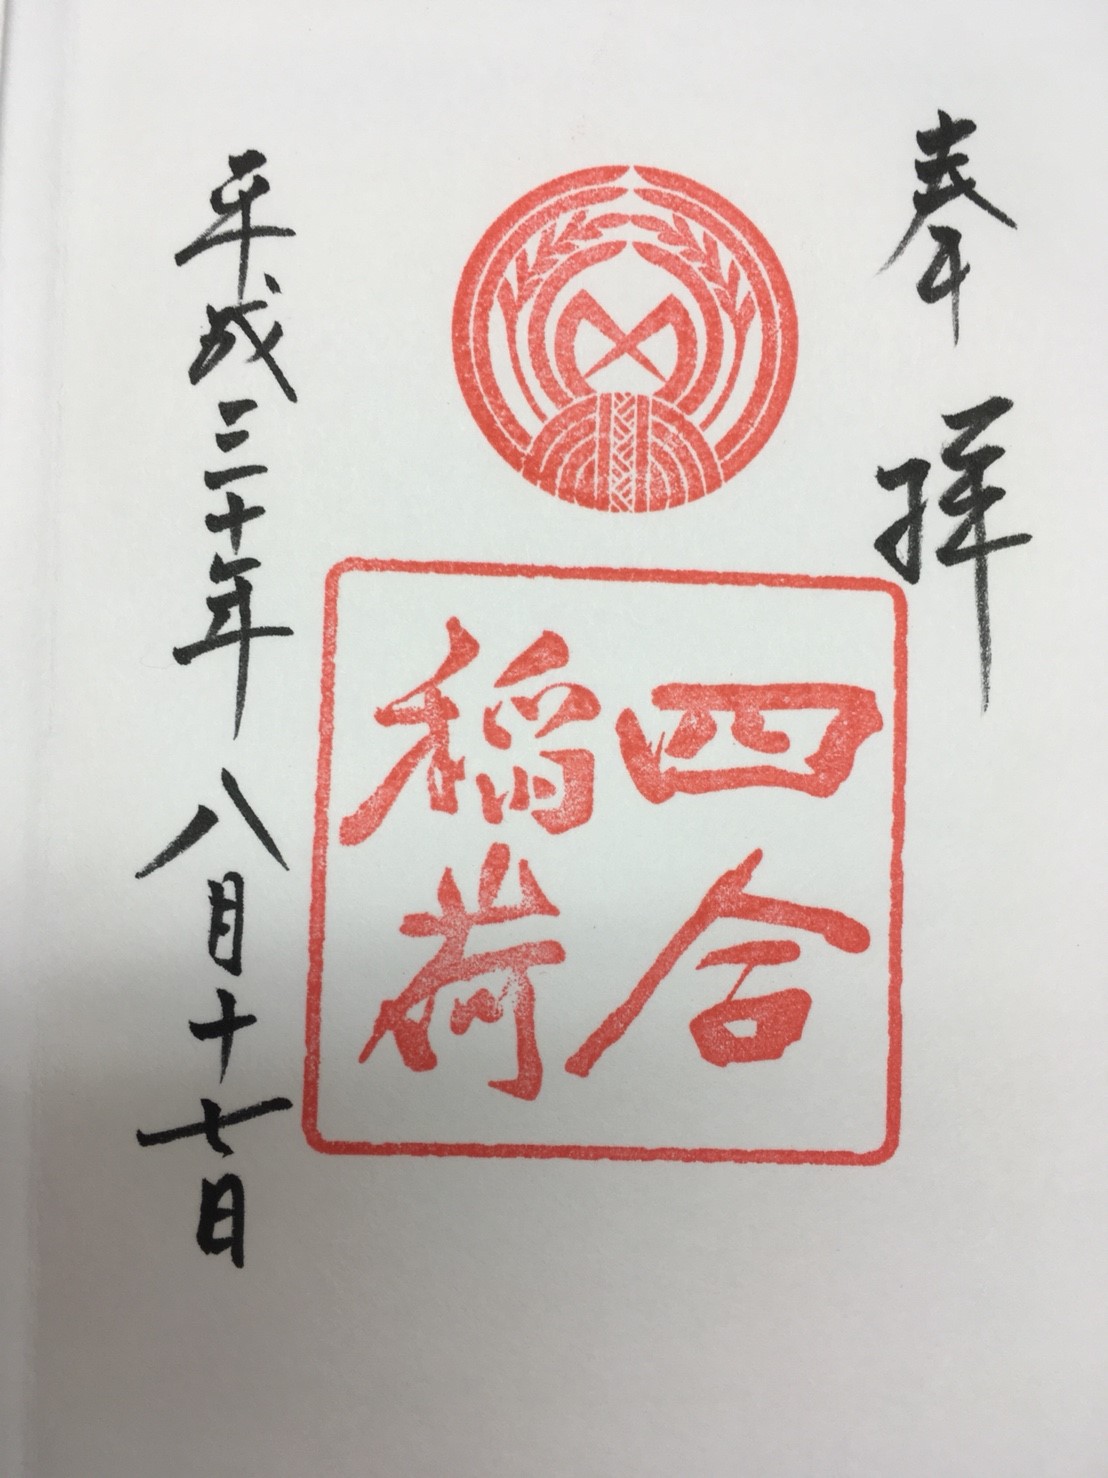 奉拝
四合
稲荷
平成三十年八月十七日